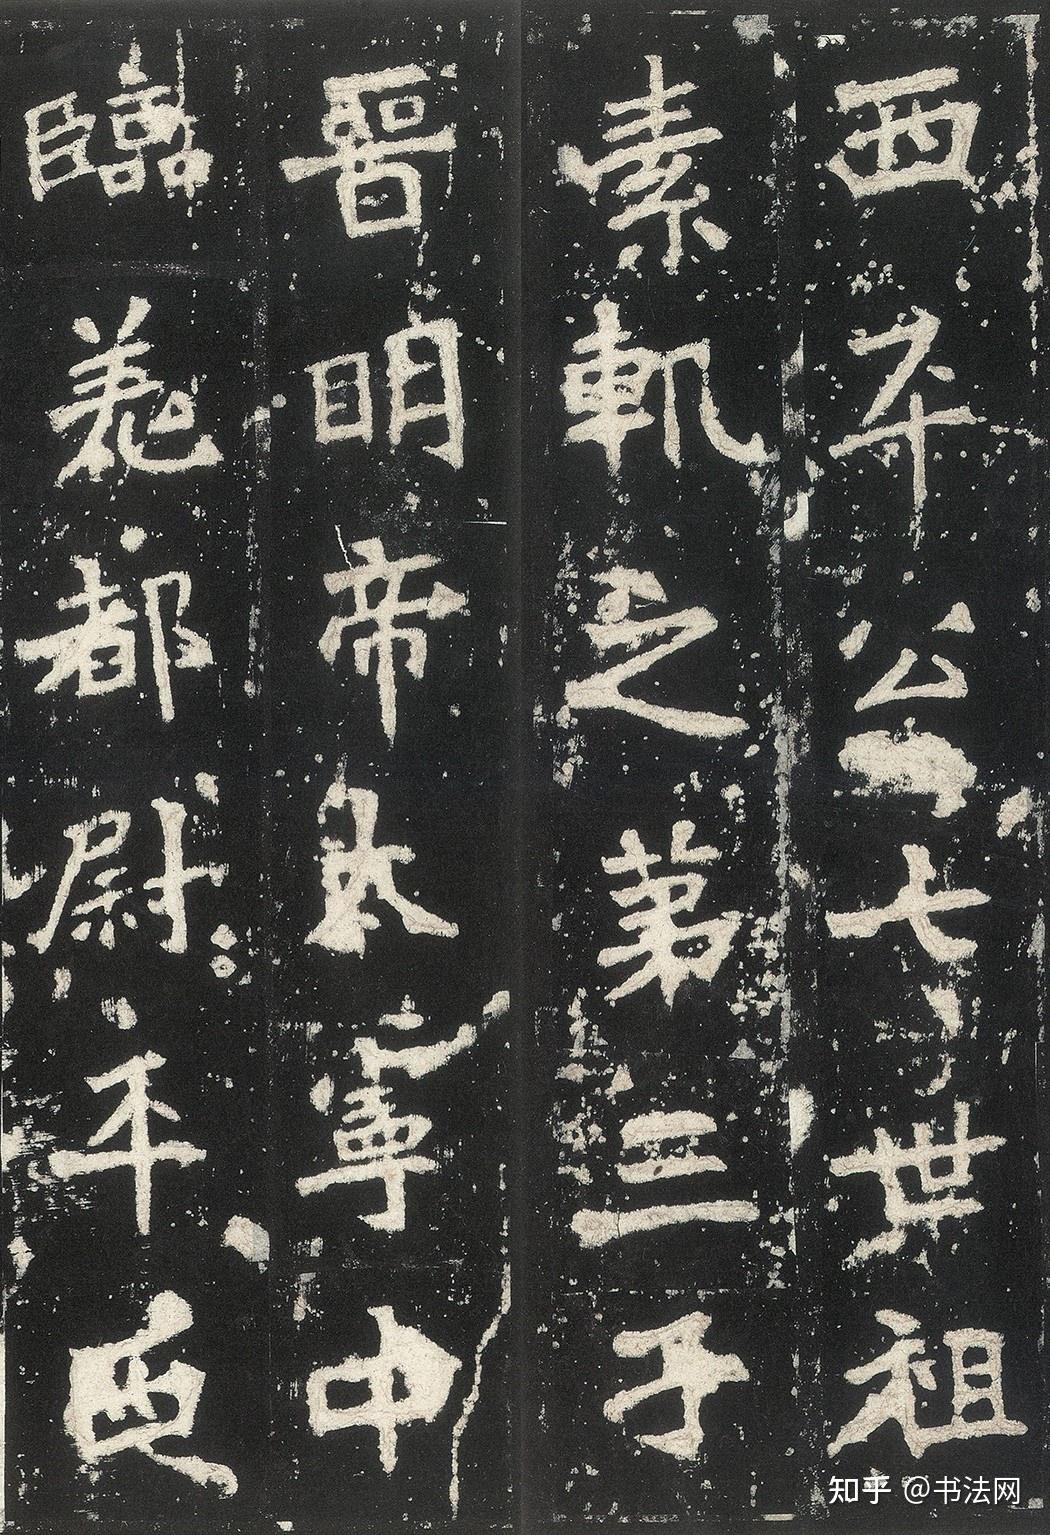 西平公七世祖
素軌之第三子
晉明帝太寧中
臨羌都尉平西
知乎 @书法网